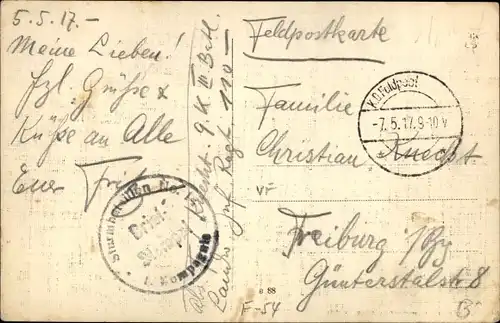 5.5.17.-
Meine Lieben!
hzl. Grüße &
Küße an Alle
Euer Fritz
Knecht. 9. K III Batl.
Landw Inf Regt 110
Sturmbataillon No.
Brief-
Stempel
1. Kompagnie
Feldpostkarte
K.D.Feldpost
-7.5.17.9-10V
Familie
Christian Knecht
VF
Freiburg i/Bg
Günterstalstr 8
B 88
F-54
B